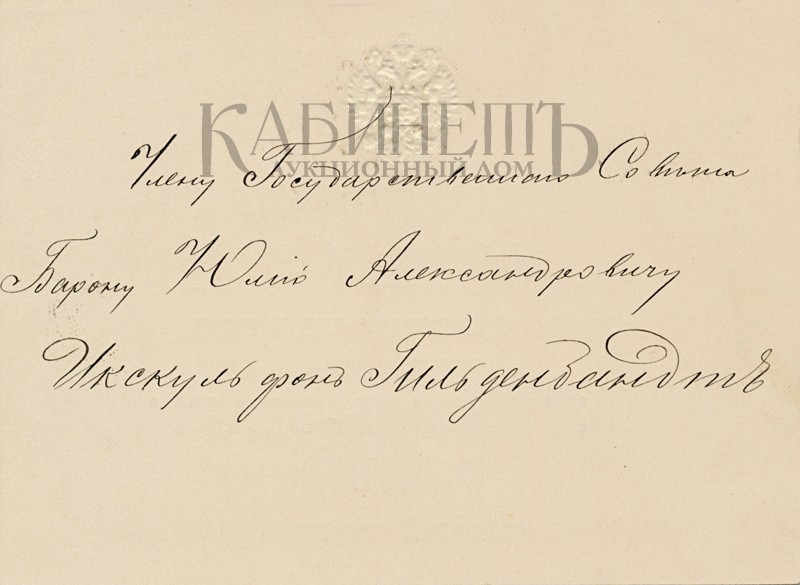 КАБИНЕТЪ
АУКЦИОННЫЙ ДОМ
Члену Государственнаго Совѣта
Барону Юлію Александровичу
Икскуль фонъ Гильденбандтъ